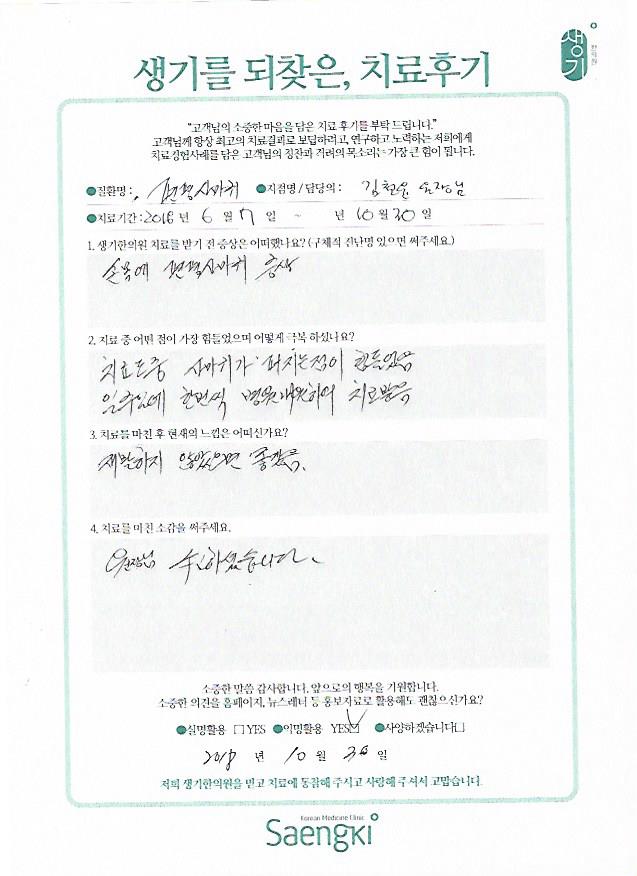 생기
한의원
생기를 되찾은, 치료후기
"고객님의 소중한 마음을 담은 치료 후기를 부탁 드립니다."
고객님께 항상 최고의 치료결과로 보답하려고, 연구하고 노력하는 저희에게
치료경험사례를 담은 고객님의 칭찬과 격려의 목소리는 가장 큰 힘이 됩니다.
●질환명 : 편평사마귀 ●지점명 / 담당의 : 원장님
●치료기간 : 2018 년 6 월 7 일 ~ 년 10 월 30 일
1. 생기한의원 치료를 받기 전 증상은 어떠했나요? (구체적 진단명 있으면 써주세요.)
손목에 편평사마귀 증상
2. 치료 중 어떤 점이 가장 힘들었으며 어떻게 극복 하셨나요?
치료도중 사마귀가 퍼지는점이 힘들었음
일주일에 한번씩 병원내원하여 치료받음
3. 치료를 마친 후 현재의 느낌은 어떠신가요?
재발하지 않았으면 좋겠음.
4. 치료를 마친 소감을 써주세요.
원장님 수고하셨습니다.
소중한 말씀 감사합니다. 앞으로의 행복을 기원합니다.
소중한 의견을 홈페이지, 뉴스레터 등 홍보자료로 활용해도 괜찮으신가요?
●실명활용 □YES ●익명활용 YES☑ ●사양하겠습니다□
2018 년 10 월 30 일
저희 생기한의원을 믿고 치료에 동참해 주시고 사랑해 주셔서 고맙습니다.
Korean Medicine Clinic
Saengki